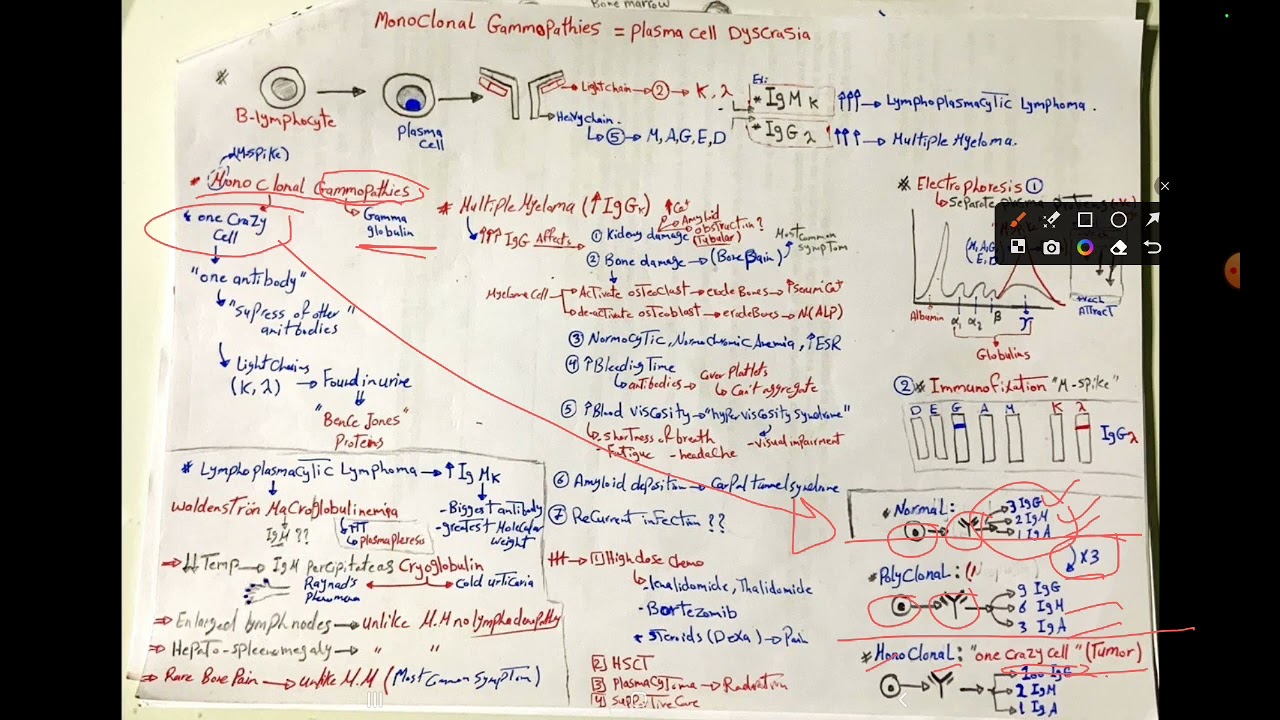 Bone marrow
Monoclonal Gammopathies = plasma cell Dyscrasia
B-lymphocyte
plasma cell
Light chain → ② → K, λ
Heavy chain.
↳ ⑤ → M, A, G, E, D
Ex:
* IgMκ ↑↑↑ → Lymphoplasmacytic Lymphoma.
* IgGλ ↑↑↑ → Multiple Myeloma.
(M-spike)
* Monoclonal Gammopathies
one Crazy Cell
Gamma globulin
"one antibody"
"Supress of other antibodies"
Light chains (K, λ) → Found in urine
"Bence Jones" Proteins
* Multiple Myeloma (↑IgGκ)
↑↑↑ IgG Affects →
↑Ca+
Amyloid
obstruction?
① Kidney damage (Tubular)
② Bone damage → (Bone Pain)
Most Common symptom
Myeloma Cell
Activate osteoclast → erode Bones → ↑Serum Ca+
de-activate osteoblast → erode Bones → N(ALP)
③ Normocytic, Normochromic Anemia, ↑ESR
④ ↑Bleeding Time
↳ antibodies → Cover Platlets
↳ Can't aggregate
⑤ ↑Blood viscosity → "hyper viscosity syndrome"
↳ shortness of breath
- visual impairment
- Fatigue - headache
⑥ Amyloid deposition → Carpal tunnel syndrome
⑦ Recurrent infection ??
1 High dose chemo
Thalidomide
- Bortezomib
* Steroids (Dexa) → Pain
2 HSCT
3 plasmacytoma → Radiation
4 Supportive Care
* Lymphoplasmacytic Lymphoma → ↑IgMκ
Waldenström Macroglobulinemia
IgM ??
↳ plasmapheresis
- Biggest antibody
- greatest Molecular weight
⇒ Temp → IgM percipitate as Cryoglobulin
Raynad's Phenomen
Cold urticaria
⇒ Enlarged lymph nodes → unlike M.M no lymphadenopathy
⇒ Hepato-spleenomegaly → " "
⇒ Rare Bone Pain → unlike M.M (Most Common symptom)
* Electrophoresis ①
↳ Separate plasma proteins
(M, A, G, E, D)
Attract
Albumin α₁ α₂ β γ
Globulins
② * Immunofixation "M-spike"
D E G A M K λ
IgGλ
* Normal:
3 IgG
2 IgM
1 IgA
X3
* PolyClonal:
9 IgG
6 IgM
3 IgA
* MonoClonal: "one crazy cell" (Tumor)
100 IgG
2 IgM
1 IgA